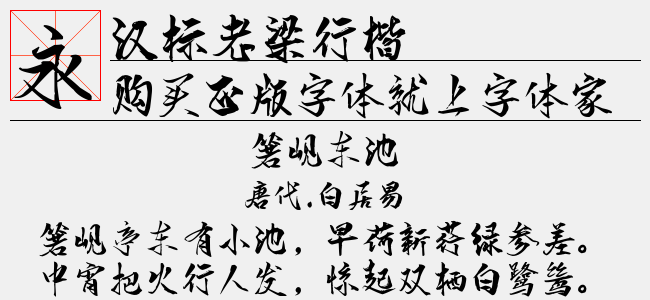 永
汉标老梁行楷
购买正版字体就上字体家
箬岘东池
唐代.白居易
箬岘亭东有小池，早荷新荇绿参差。
中宵把火行人发，惊起双栖白鹭鸶。